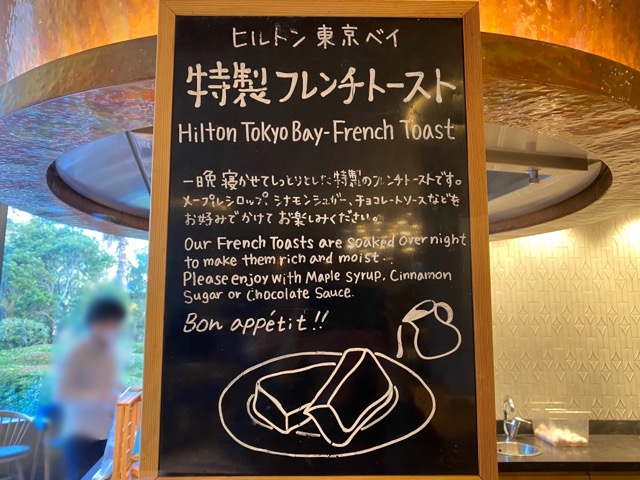 ヒルトン東京ベイ
特製フレンチトースト
Hilton Tokyo Bay-French Toast
一晩寝かせてしっとりとした特製のフレンチトーストです。
メープルシロップ、シナモンシュガー、チョコレートソースなどを
お好みでかけてお楽しみください。
Our French Toasts are soaked over night
to make them rich and moist.
Please enjoy with Maple syrup, Cinnamon
Sugar or Chocolate Sauce.
Bon appétit!!